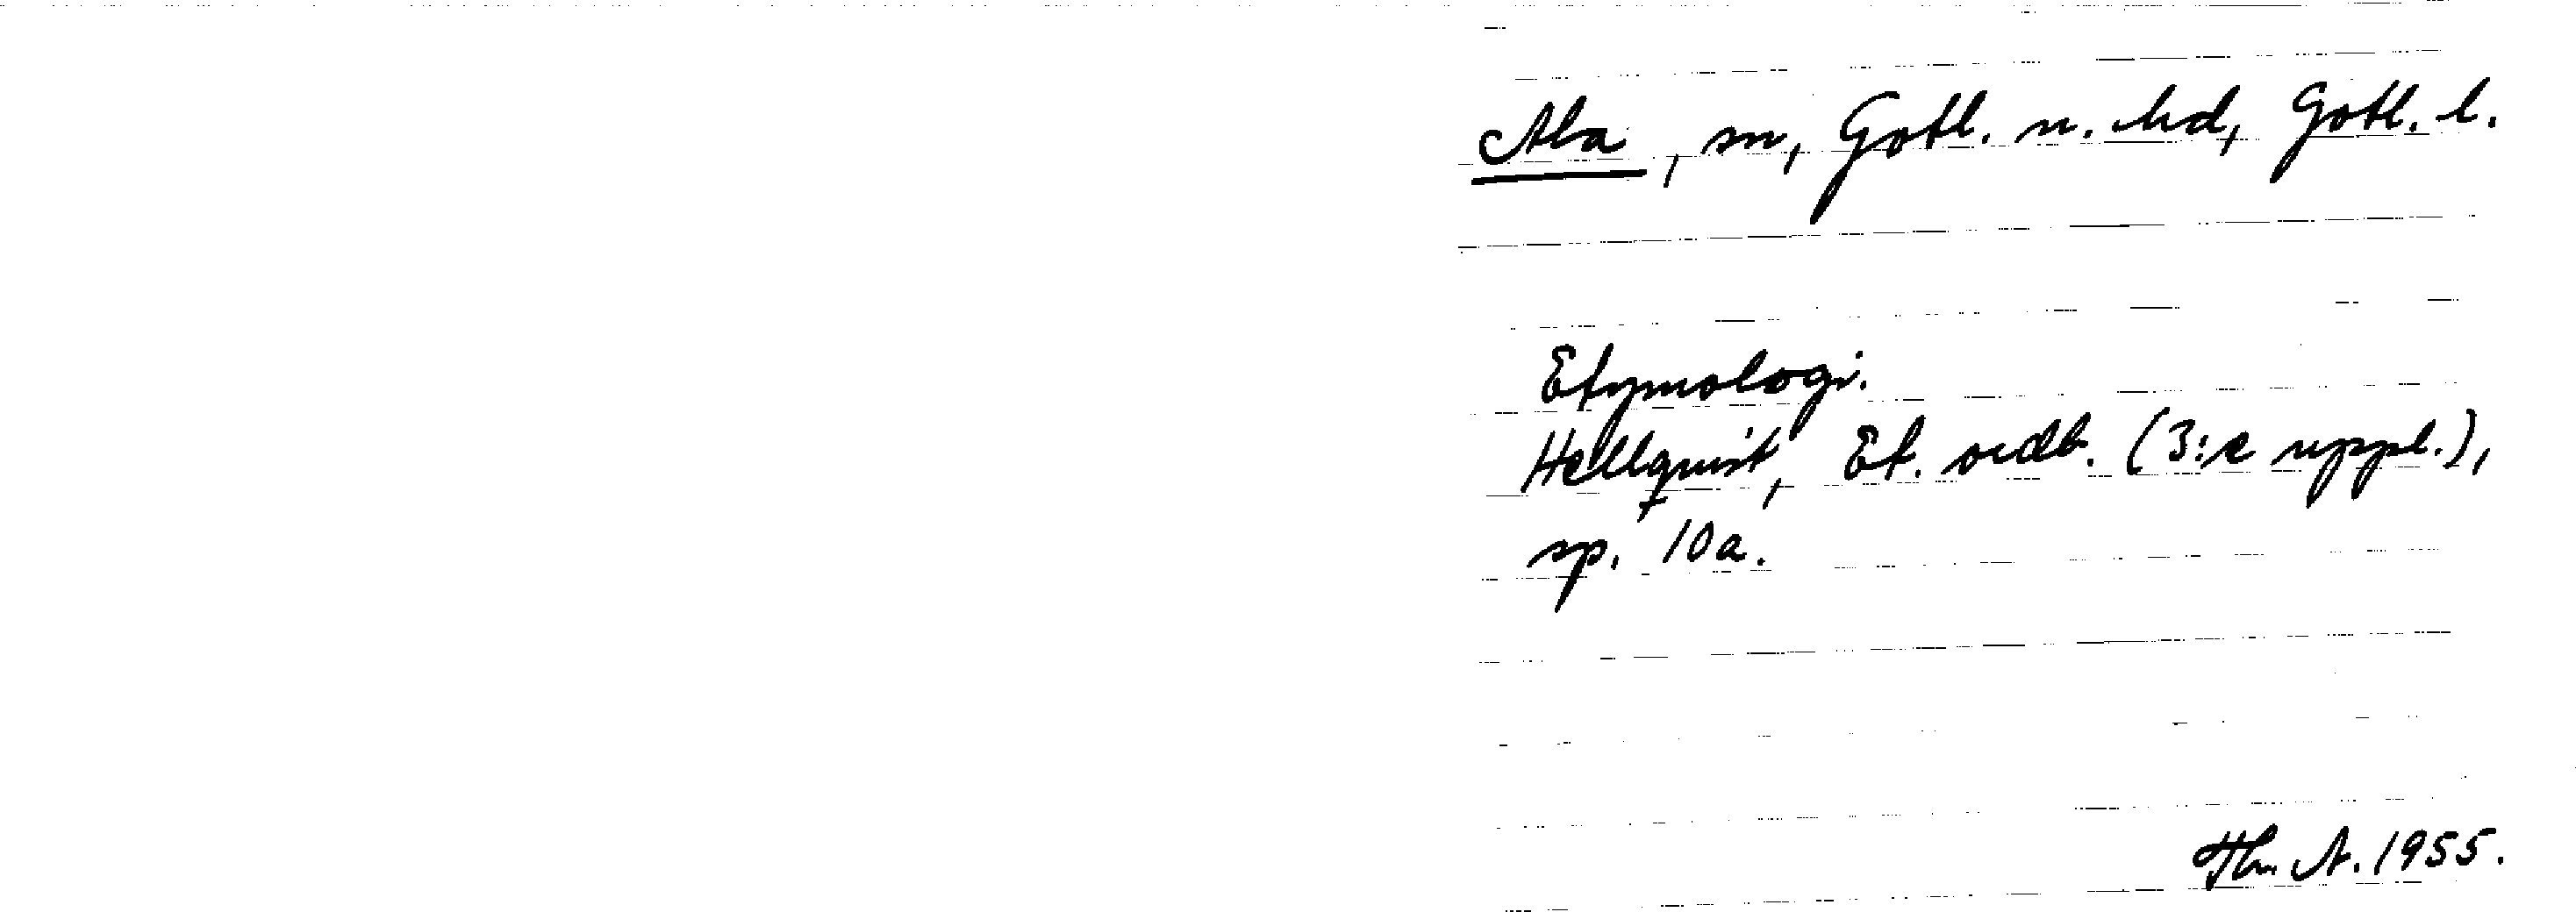 Ala, sn, Gotl. n. hd, Gotl. l.
Etymologi.
Hellquist, Et. ordb. (3:e uppl.),
sp. 10a.
Hn A. 1955.